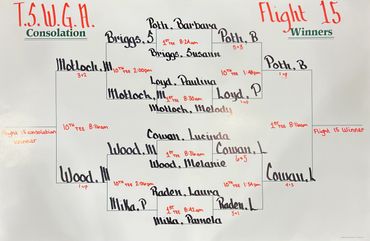 T.S.W.G.A.
Flight 15
Consolation
Winners
Poth, Barbara
Briggs, S
1st Tee 8:24am
Poth, B
Briggs, Susann
5+3
Motloch, M
10th Tee 2:00pm
10th Tee 1:48pm
Poth, B
3+2
Loyd, Paulina
1 up
Motloch, M
1st Tee 8:30am
Loyd, P
Motloch, Melody
Flight 15 consolation
Winner
10th Tee 8:11am
1st Tee 8:11am
Flight 15 Winner
Cowan, Lucinda
Wood, M
1st Tee 8:36am
Cowan, L
Wood, Melanie
6+5
Wood, M
10th Tee
10th Tee 1:54pm
Cowan, L
1 up
Raden, Laura
Milla, P
1st Tee 8:42am
Raden, L
Milla, Pamela